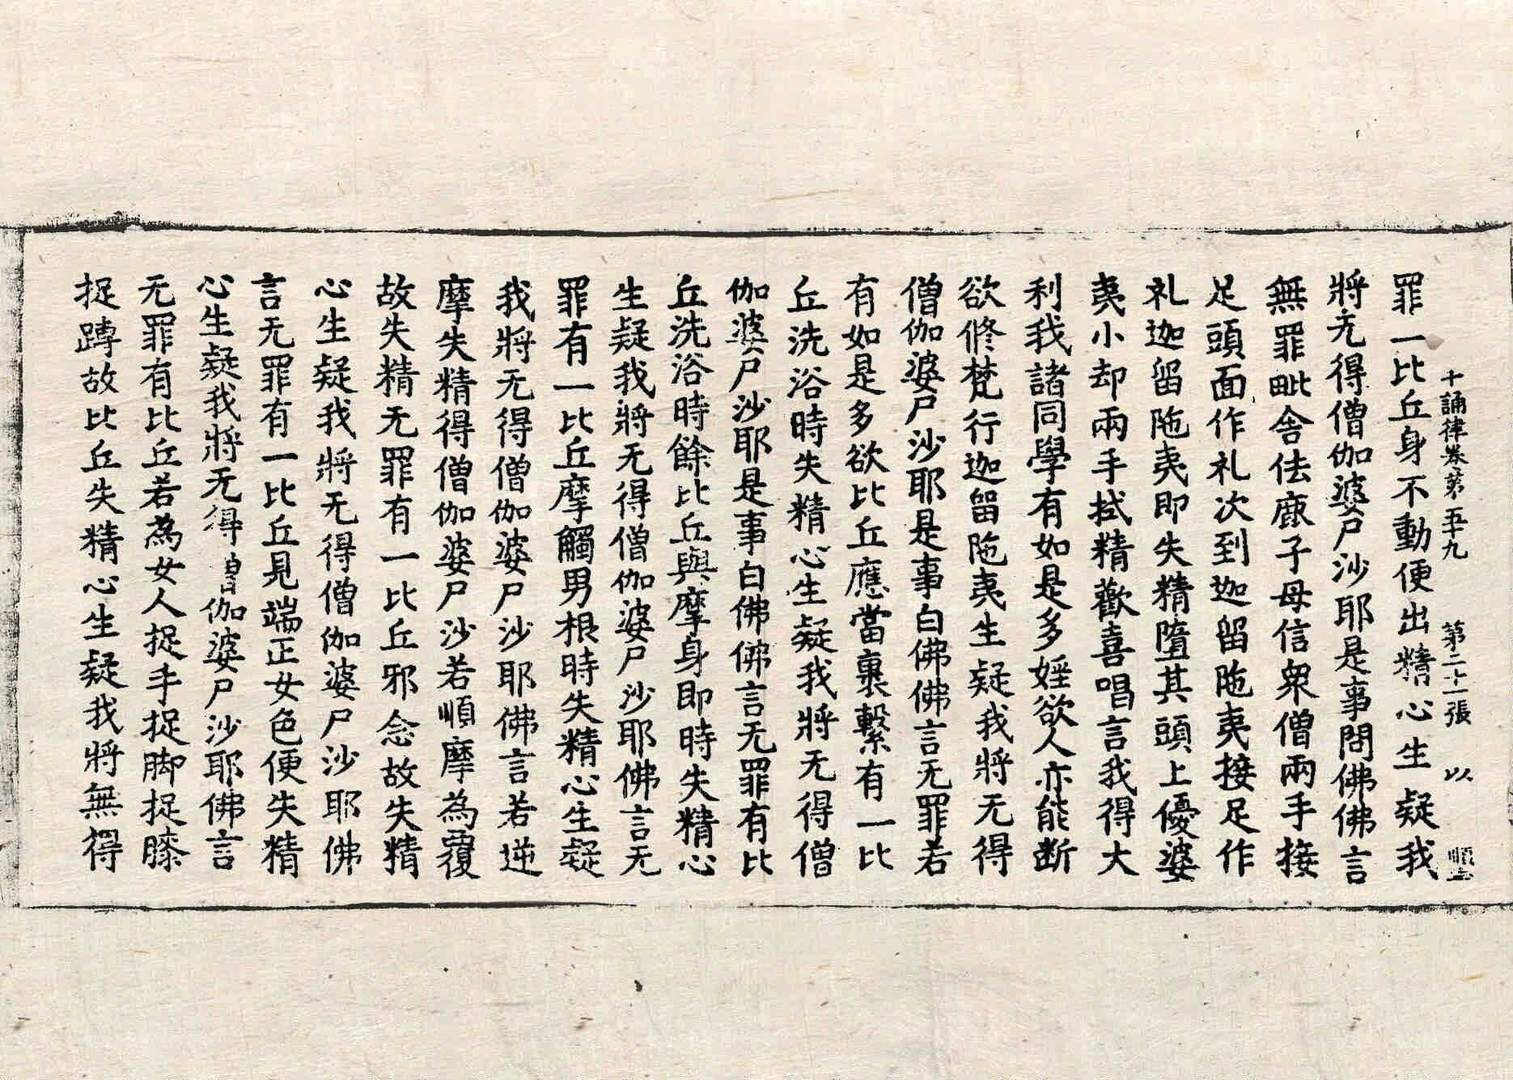 十誦律卷第五十九 第二十一張 以 順
罪一比丘身不動便出精心生疑我
將无得僧伽婆尸沙耶是事問佛佛言
無罪毗舍佉鹿子母信衆僧兩手接
足頭面作礼次到迦留陁夷接足作
礼迦留陁夷即失精墮其頭上優婆
夷小却兩手拭精歡喜唱言我得大
利我諸同學有如是多婬欲人亦能断
欲修梵行迦留陁夷生疑我將无得
僧伽婆尸沙耶是事白佛佛言无罪若
有如是多欲比丘應當裹繫有一比
丘洗浴時失精心生疑我將无得僧
伽婆尸沙耶是事白佛佛言无罪有比
丘洗浴時餘比丘與摩身即時失精心
生疑我將无得僧伽婆尸沙耶佛言无
罪有一比丘摩觸男根時失精心生疑
我將无得僧伽婆尸沙耶佛言若逆
摩失精得僧伽婆尸沙若順摩為覆
故失精无罪有一比丘邪念故失精
心生疑我將无得僧伽婆尸沙耶佛
言无罪有一比丘見端正女色便失精
心生疑我將无得僧伽婆尸沙耶佛言
无罪有比丘若為女人捉手捉脚捉膝
捉蹲故比丘失精心生疑我將無得